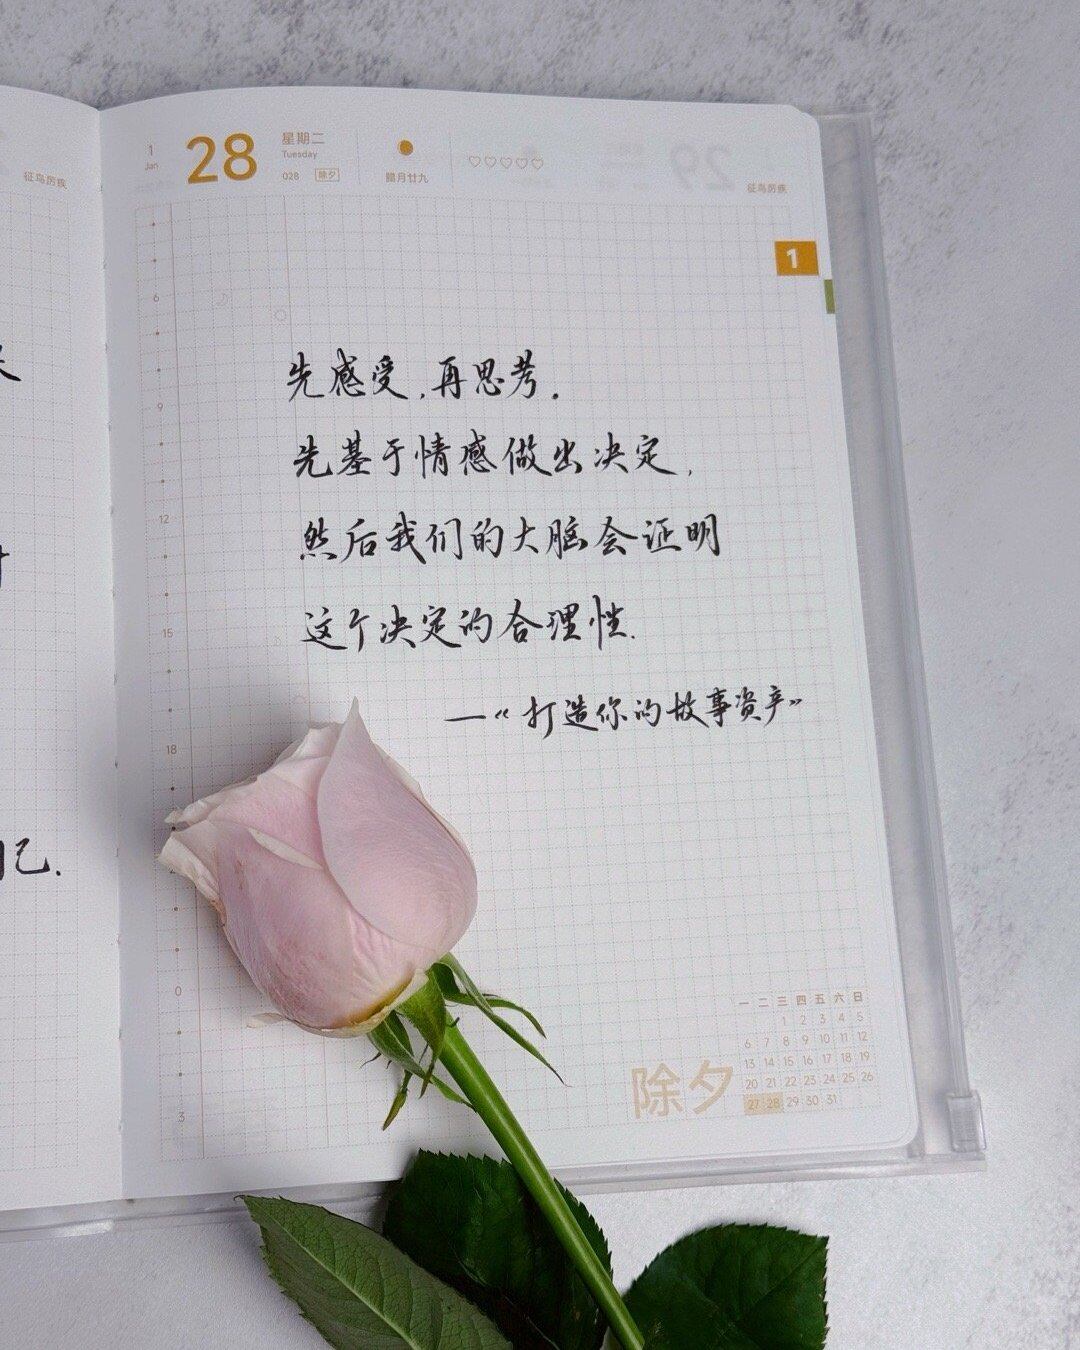 征鸟厉疾
自己.
1
Jan
28
星期二
Tuesday
028 除夕
腊月廿九
征鸟厉疾
1
6
9
12
15
18
0
3
先感受,再思考.
先基于情感做出决定,
然后我们的大脑会证明
这个决定的合理性.
—“打造你的故事资产”
除夕
一 二 三 四 五 六 日
1 2 3 4 5
6 7 8 9 10 11 12
13 14 15 16 17 18 19
20 21 22 23 24 25 26
27 28 29 30 31